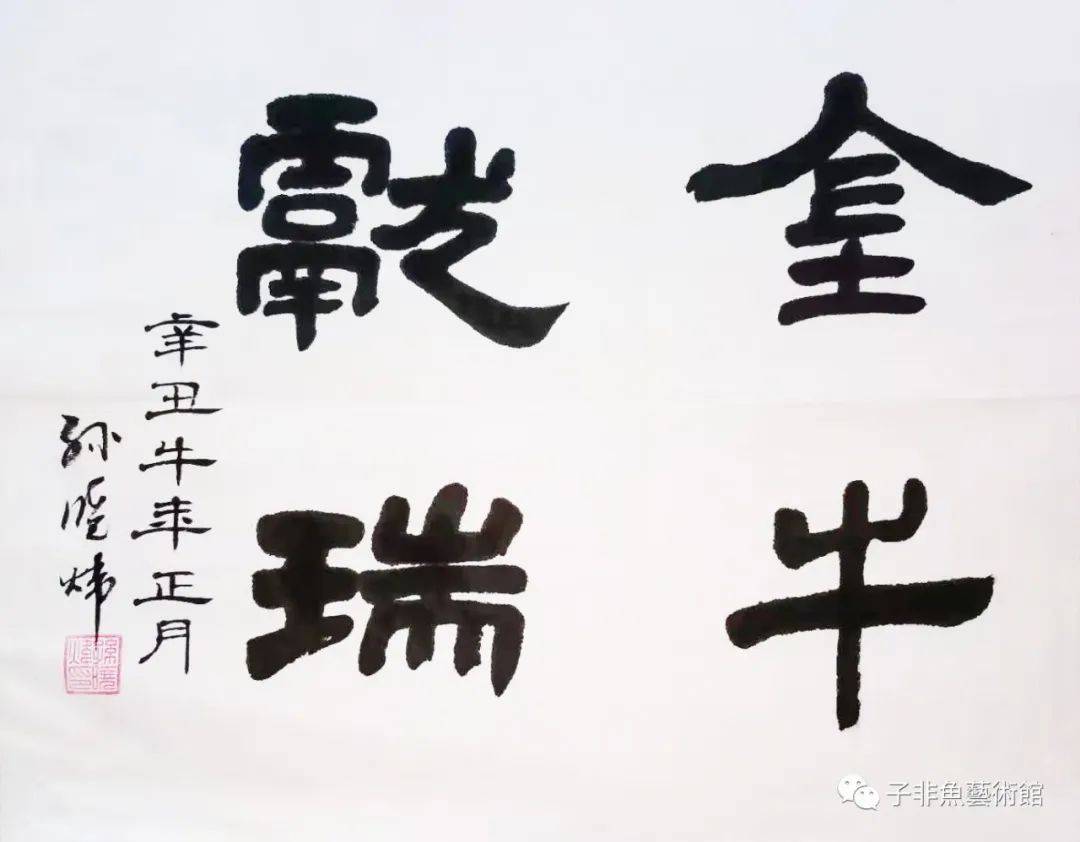 金牛
獻瑞
辛丑牛年正月
孙晓炜
子非魚藝術館